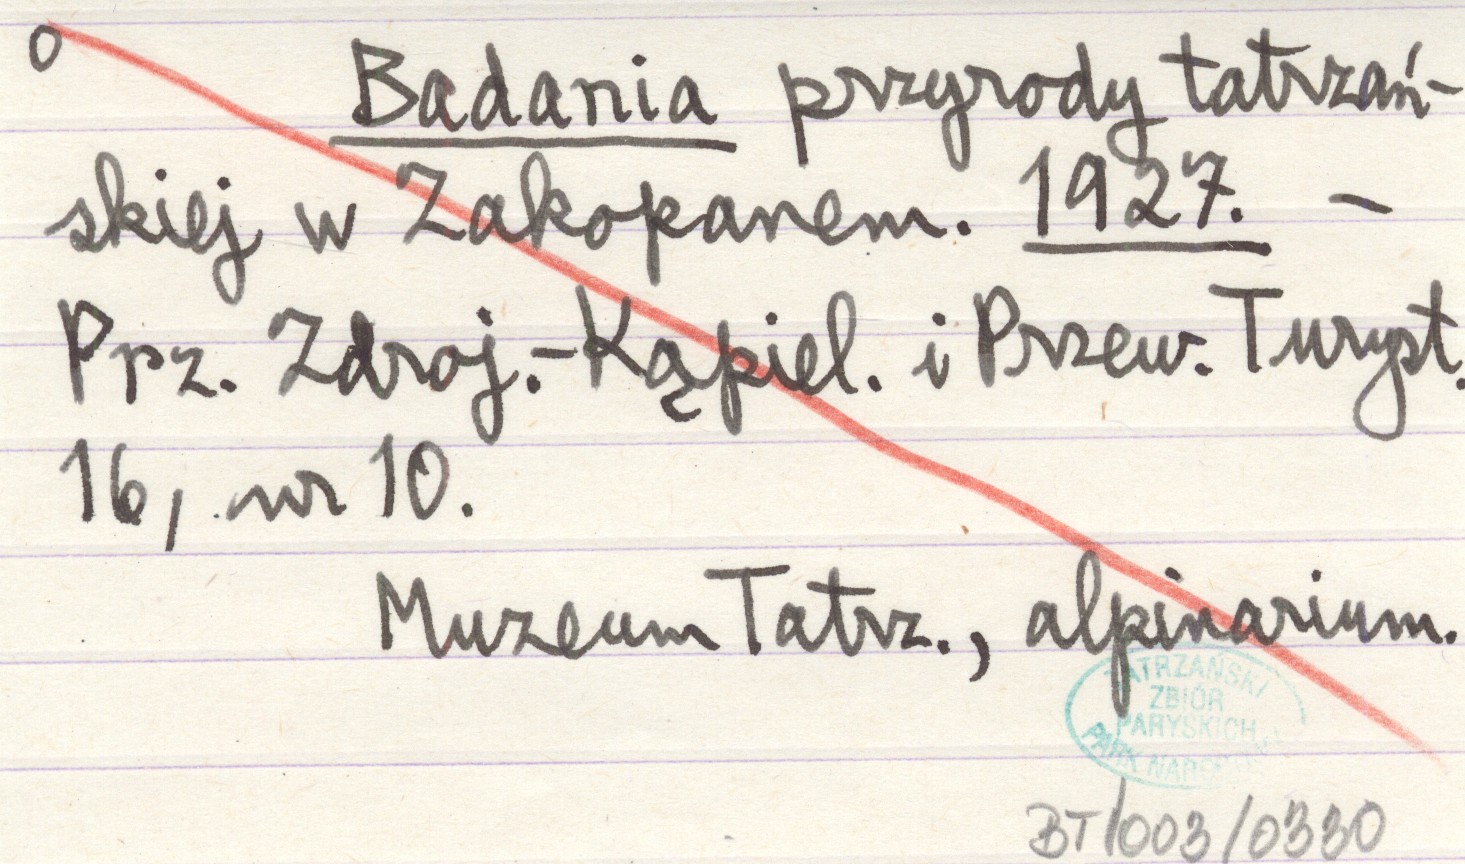 o Badania przyrody tatrzań-
skiej w Zakopanem. 1927. -
Ppz. Zdroj.-Kąpiel. i Przew. Turyst.
16, nr 10.
Muzeum Tatrz., alpinarium.
TATRZAŃSKI
ZBIÓR
PARYSKICH
PARK NARODOWY
BT/003/0330